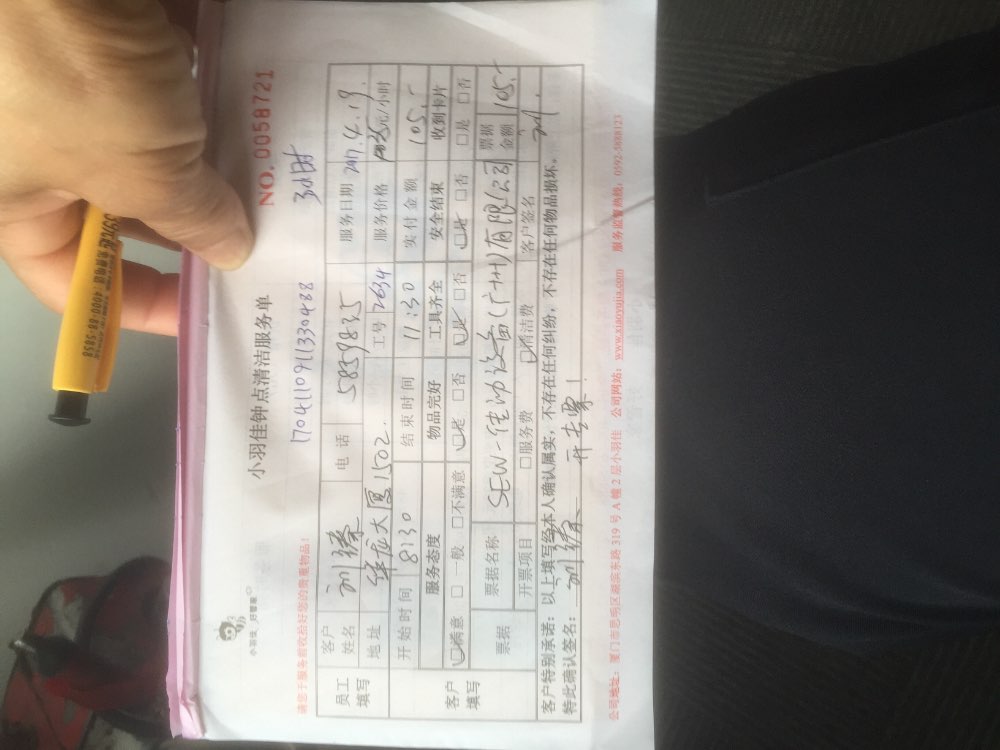 小羽佳 好管家
小羽佳钟点清洁服务单
NO. 0058721
请您于服务前收拾好您的贵重物品!
1704110911330488
3小时
员工填写
客户姓名
电话 5839875
服务日期 2017.4.19
地址 华龙大厦1502.
工号 2634
服务价格 35元/小时
开始时间 8:30
结束时间 11:30
实付金额 105.-
客户填写
服务态度 物品完好 工具齐全 安全结束 收到卡片
☑满意 □一般 □不满意 ☑是 □否 ☑是 □否 ☑是 □否 □是 □否
票据
票据名称 SEW-传动设备(广州)有限公司
票据金额 105.-
开票项目 □服务费 □清洁费 客户签名
客户特别承诺:以上填写经本人确认属实,不存在任何纠纷,不存在任何物品损坏。
特此确认签名:
开发票!
公司地址:厦门市思明区湖滨东路 319 号 A 幢 2 层小羽佳 公司网站:www.xiaoyujia.com 服务监督热线:0592-5888123
4000-88-5858